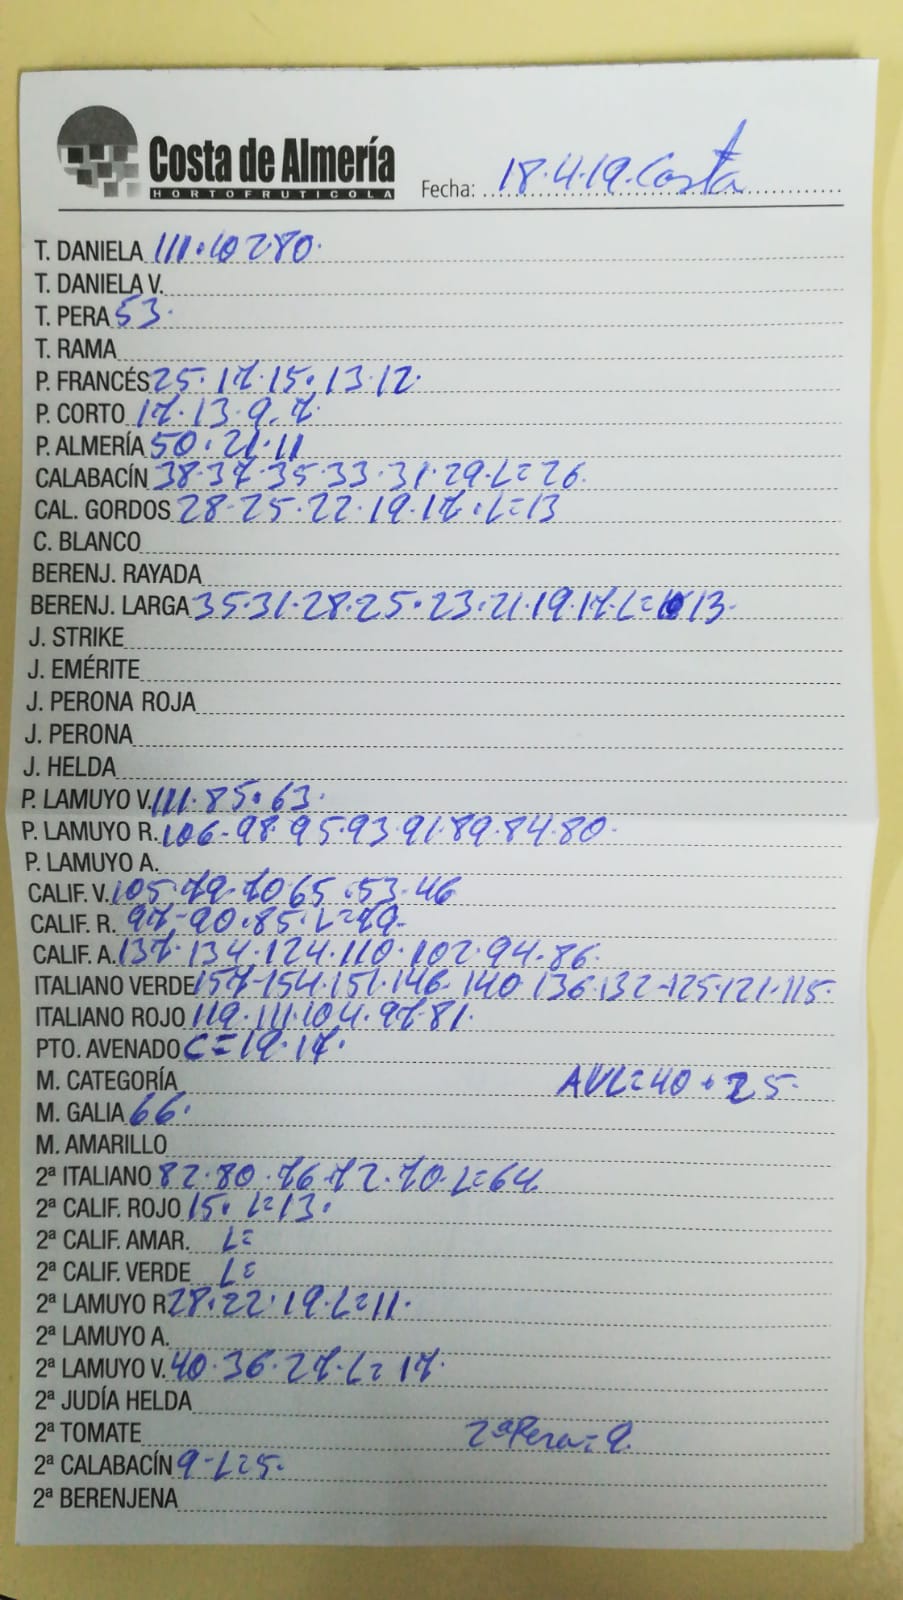 Costa de Almería
HORTOFRUTICOLA
Fecha: 18.4.19. Costa
T. DANIELA 111.102 80.
T. DANIELA V.
T. PERA 53.
T. RAMA
P. FRANCÉS 25.17.15.13.12.
P. CORTO 17.13.9.7.
P. ALMERÍA 50.21.11
CALABACÍN 38.37.35.33.31.29.L=26.
CAL. GORDOS 28-25.22.19.17.L=13
C. BLANCO
BERENJ. RAYADA
BERENJ. LARGA 35-31-28-25.23.21.19.17.L=13.
J. STRIKE
J. EMÉRITE
J. PERONA ROJA
J. PERONA
J. HELDA
P. LAMUYO V. 111.85.63.
P. LAMUYO R. 106-98.95.93.91.89.84.80.
P. LAMUYO A.
CALIF. V. 105.79.70 65.53.46
CALIF. R. 97-90.85.L=79-
CALIF. A. 137.134.124.110.102.94.86.
ITALIANO VERDE 157-154.151.146.140.136.132-125.121.115.
ITALIANO ROJO 119.111.104.97.81.
PTO. AVENADO C=19.17.
M. CATEGORÍA AVL=40.25.
M. GALIA 66.
M. AMARILLO
2ª ITALIANO 82.80.76.72.70.L=64
2ª CALIF. ROJO 15. L=13.
2ª CALIF. AMAR. L=
2ª CALIF. VERDE L=
2ª LAMUYO R. 28.22.19.L=11.
2ª LAMUYO A.
2ª LAMUYO V. 40.36.27.L=17.
2ª JUDÍA HELDA
2ª TOMATE 2ª Pera=9.
2ª CALABACÍN 9-L=5.
2ª BERENJENA